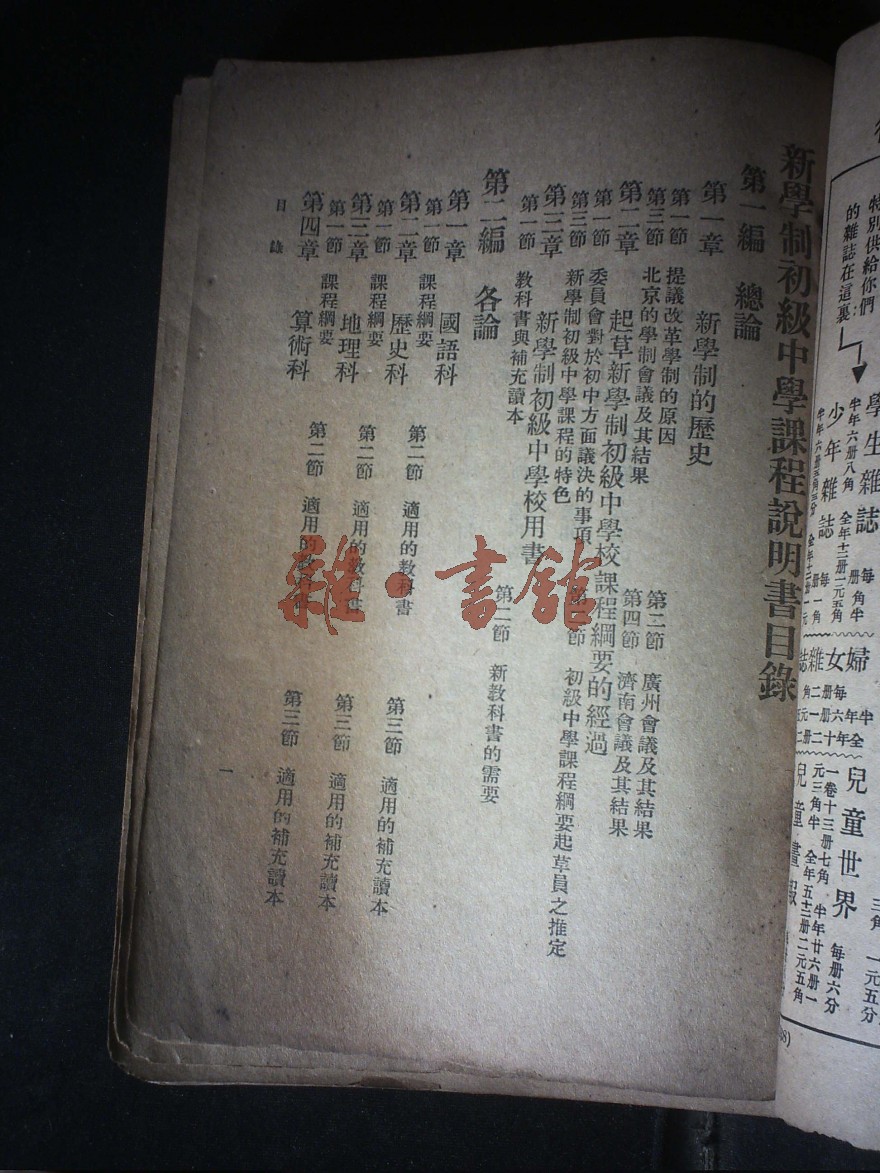 特別供給你們
的雜誌在這裏
學生雜誌
每册角半
半年六册八角 全年十二册一元五角
少年雜誌
每册一角
婦女雜誌
兒童世界 每册六分
一卷十三册七角 半年廿六册一
元三角半 全年五十二册二元五角
兒童畫報
新學制初級中學課程說明書目錄
第一編 總論
第一章 新學制的歷史
第一節 提議改革學制的原因 第二節 廣州會議及其結果
第三節 北京的學制會議及其結果 第四節 濟南會議及其結果
第二章 起草新學制初級中學校課程綱要的經過
第一節 委員會對於初中方面議決的事項 第二節 初級中學課程綱要起草員之推定
第三節 新學制初級中學課程的特色
第三章 新學制初級中學校用書
第一節 教科書與補充讀本 第二節 新教科書的需要
第二編 各論
第一章 國語科
第一節 課程綱要 第二節 適用的教科書 第三節 適用的補充讀本
第二章 歷史科
第一節 課程綱要 第二節 適用的教科書 第三節 適用的補充讀本
第三章 地理科
第一節 課程綱要 第二節 適用的教科書 第三節 適用的補充讀本
第四章 算術科
目錄
一
雜·書館